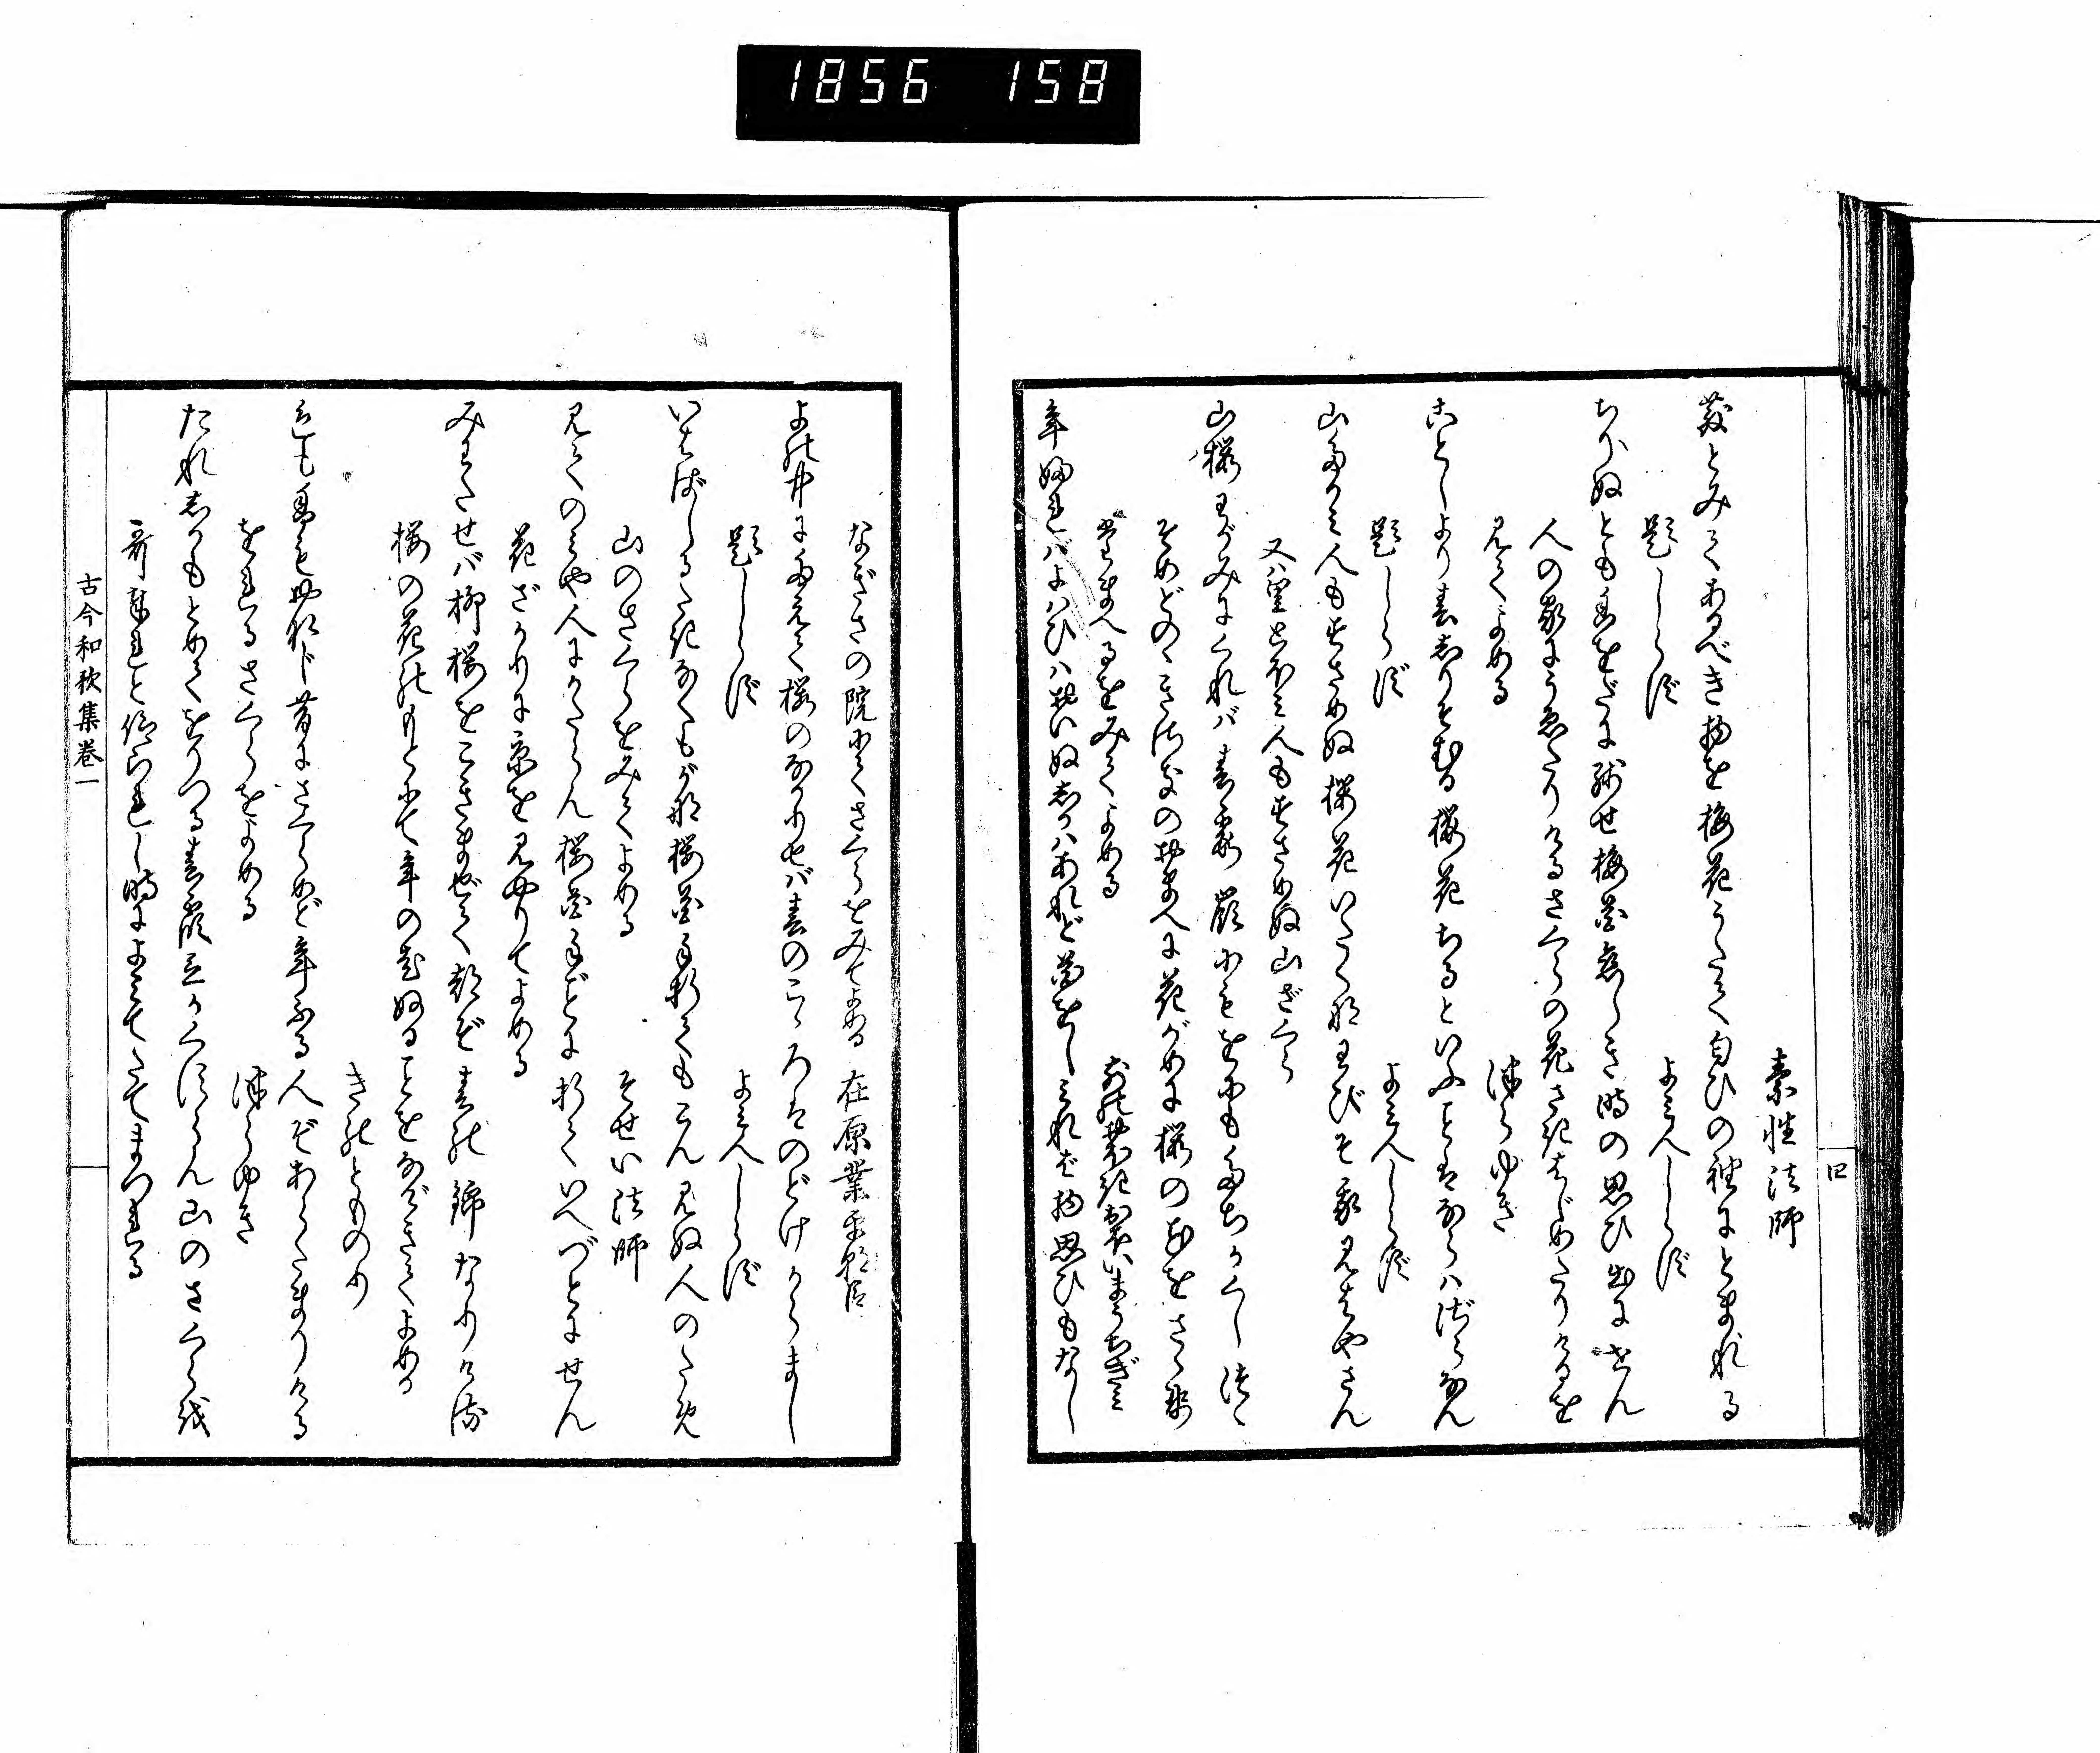 1856 158
四
素性法師
散とみてあるべき物を梅花うたて匂ひの袖にとまれる
題しらず よみ人しらず
ちりぬとも香をだに残せ梅花恋しき時の思ひ出にせん
人の家にうゑたりけるさくらの花さきはじめたりけるを
見てよめる つらゆき
ことしより春しりそむる桜花ちるといふことはならハざらなん
題しらず よみ人しらず
山高み人もすさめぬ桜花いたくなわびそ我見はやさん
又ハ里とほみ人もすさめぬ山ざくら
山桜わがみにくれバ春霞嶺にもをにも立ちかくしつゝ
そめどのゝきさきのおまへに花がめに桜の花をさゝせ
たまへるをみてよめる さきのおほきおほいまうちぎみ
年ふれバよハひハおいぬしかハあれど花をし見れば物思ひもなし
なぎさの院にてさくらをみてよめる 在原業平朝臣
よの中にたえて桜のなかりせバ春のこゝろはのどけからまし
題しらず よみ人しらず
いしばしるたきなくもがな桜花手折てもこん見ぬ人のため
山のさくらをみてよめる そせい法師
見てのみや人にかたらん桜花手ごとに折ていへづとにせん
花ざかりに京を見やりてよめる
みわたせバ柳桜をこきまぜて都ぞ春の錦なりける
桜の花のもとにて年の老ぬることをなげきてよめる
きのとものり
色も香も おなじ昔にさくらめど年ふる人ぞあらたまりける
をれるさくらをよめる つらゆき
たれしかもとめてをりつる春霞立かくすらん山のさくらを
哥奉れと仰られし時によみてたてまつれる
古今和歌集巻一